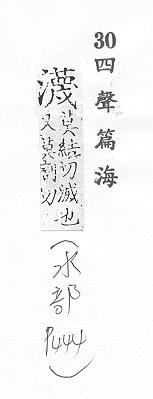 30四聲篇海
瀎莫結切滅也
又莫割切
(水部P444)